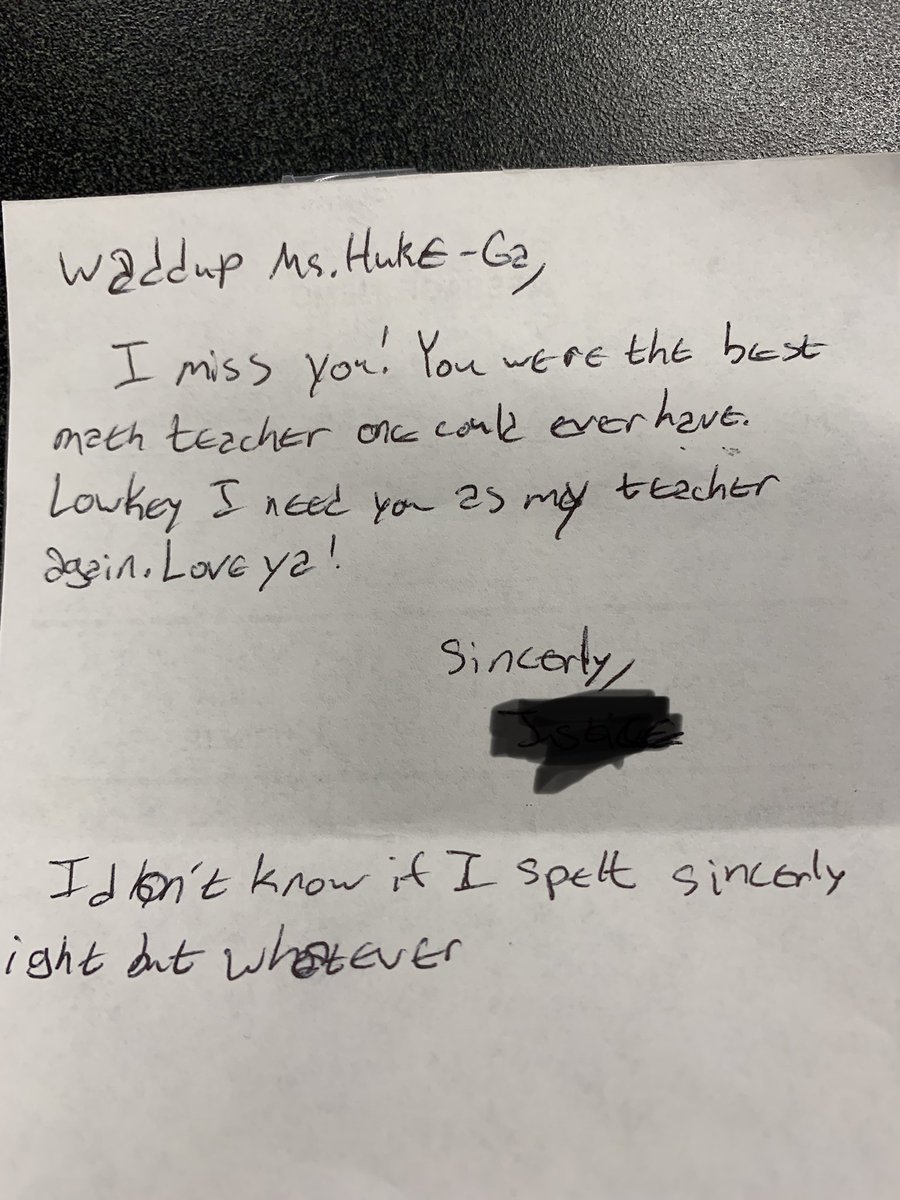 Waddup Ms. Huke-Ga,
I miss you! You were the best
math teacher one could ever have.
Lowkey I need you as my teacher
again. Love ya!
Sincerly,
I don't know if I spelt sincerly
ight but whatever